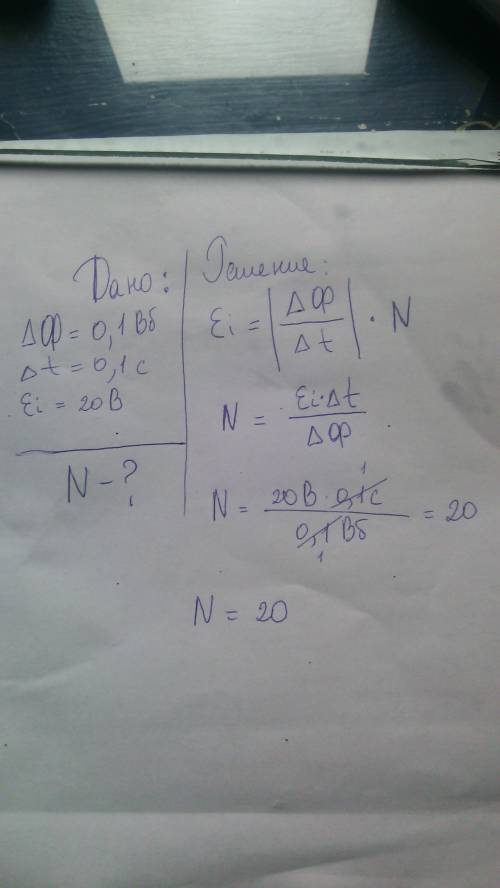 Дано:
ΔФ = 0,1 Вб
Δt = 0,1 с
Ɛi = 20 В
N - ?
Решение:
Ɛi = |ΔФ / Δt| · N
N = Ɛi·Δt / ΔФ
N = 20В · 0,1с / 0,1 Вб = 20
1
1
N = 20